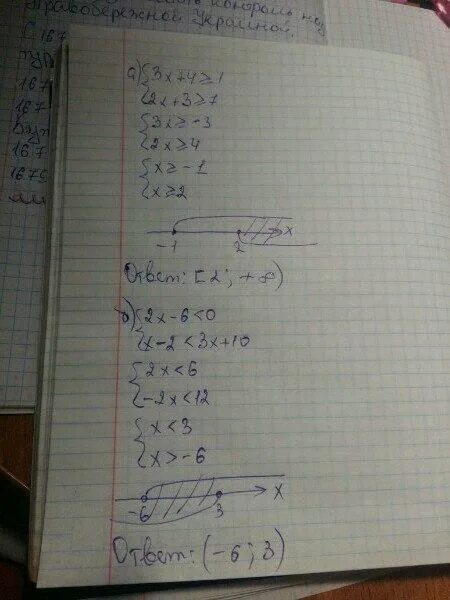 контроль над
Правобережной Украиной
С 167
1675
а) { 3x+4≥1
{ 2x+3≥7
{ 3x≥-3
{ 2x≥4
{ x≥-1
{ x≥2
-1 2 x
Ответ: [2; +∞)
б) { 2x-6<0
{ x-2<3x+10
{ 2x<6
{ -2x<12
{ x<3
{ x>-6
-6 3 x
Ответ: (-6; 3)